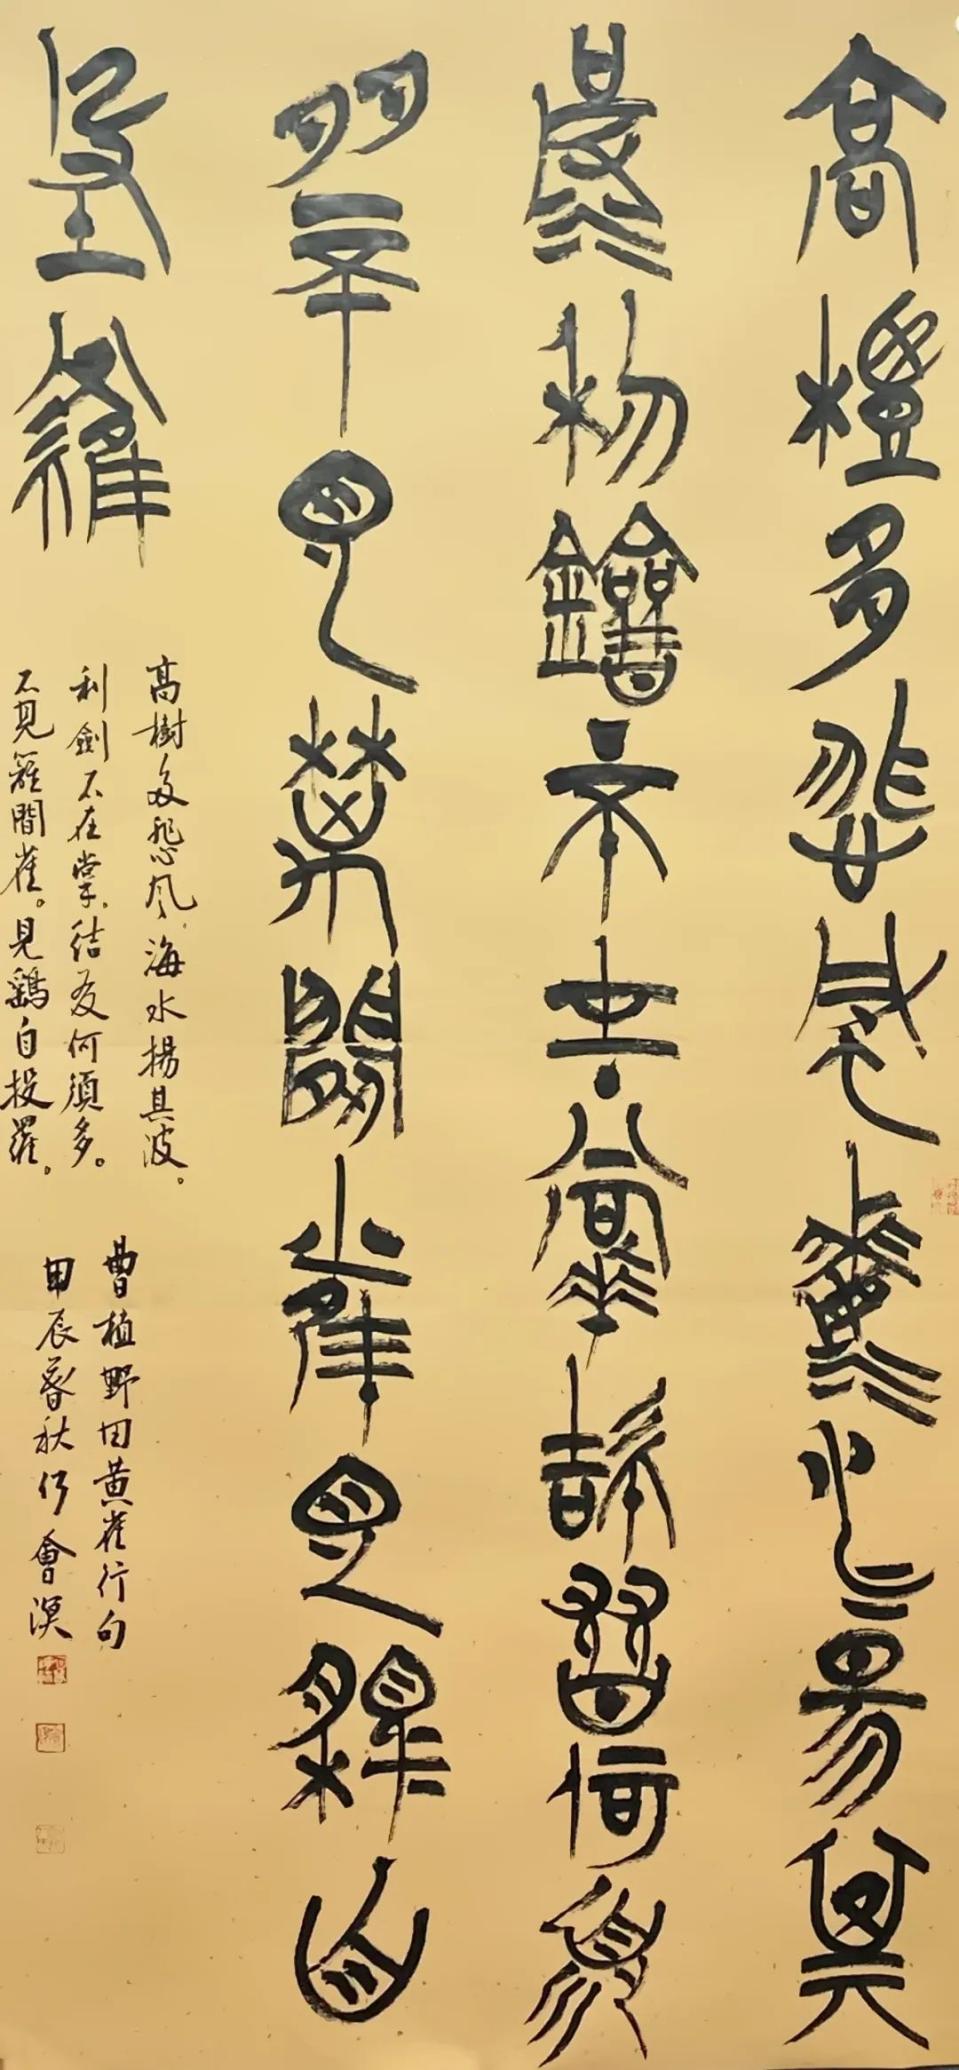 高樹多悲風海水揚其
波利劍不在掌結友何須
多不見籬間雀見鷂自
投羅
高樹多悲風，海水揚其波。
利劍不在掌，結友何須多。
不見籬間雀。見鷂自投羅。
曹植野田黃雀行句
甲辰暮秋會